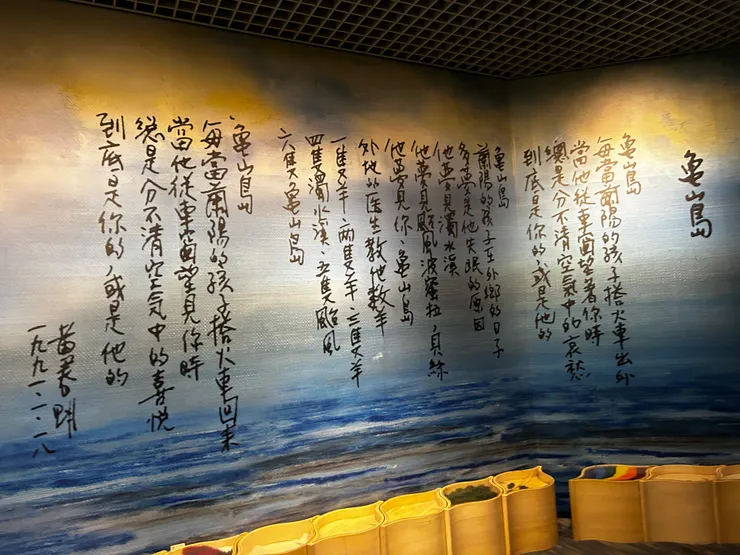 龜山島
龜山島
每當蘭陽的孩子搭火車出外
當他從車窗望著你時
總是分不清空氣中的哀愁
到底是你的、或是他的
龜山島
蘭陽的孩子在外鄉的日子
多夢是他失眠的原因
他夢見濁水溪
他夢見颱風波蜜拉、貝絲
他夢見你、龜山島
外地的医生教他數羊
一隻羊、兩隻羊、三隻羊
四隻濁水溪、五隻颱風
六隻龜山島
龜山島
每當蘭陽的孩子搭火車回來
當他從車窗望見你時
總是分不清空氣中的喜悅
到底是你的、或是他的
黃春明
一九九一、二、一八